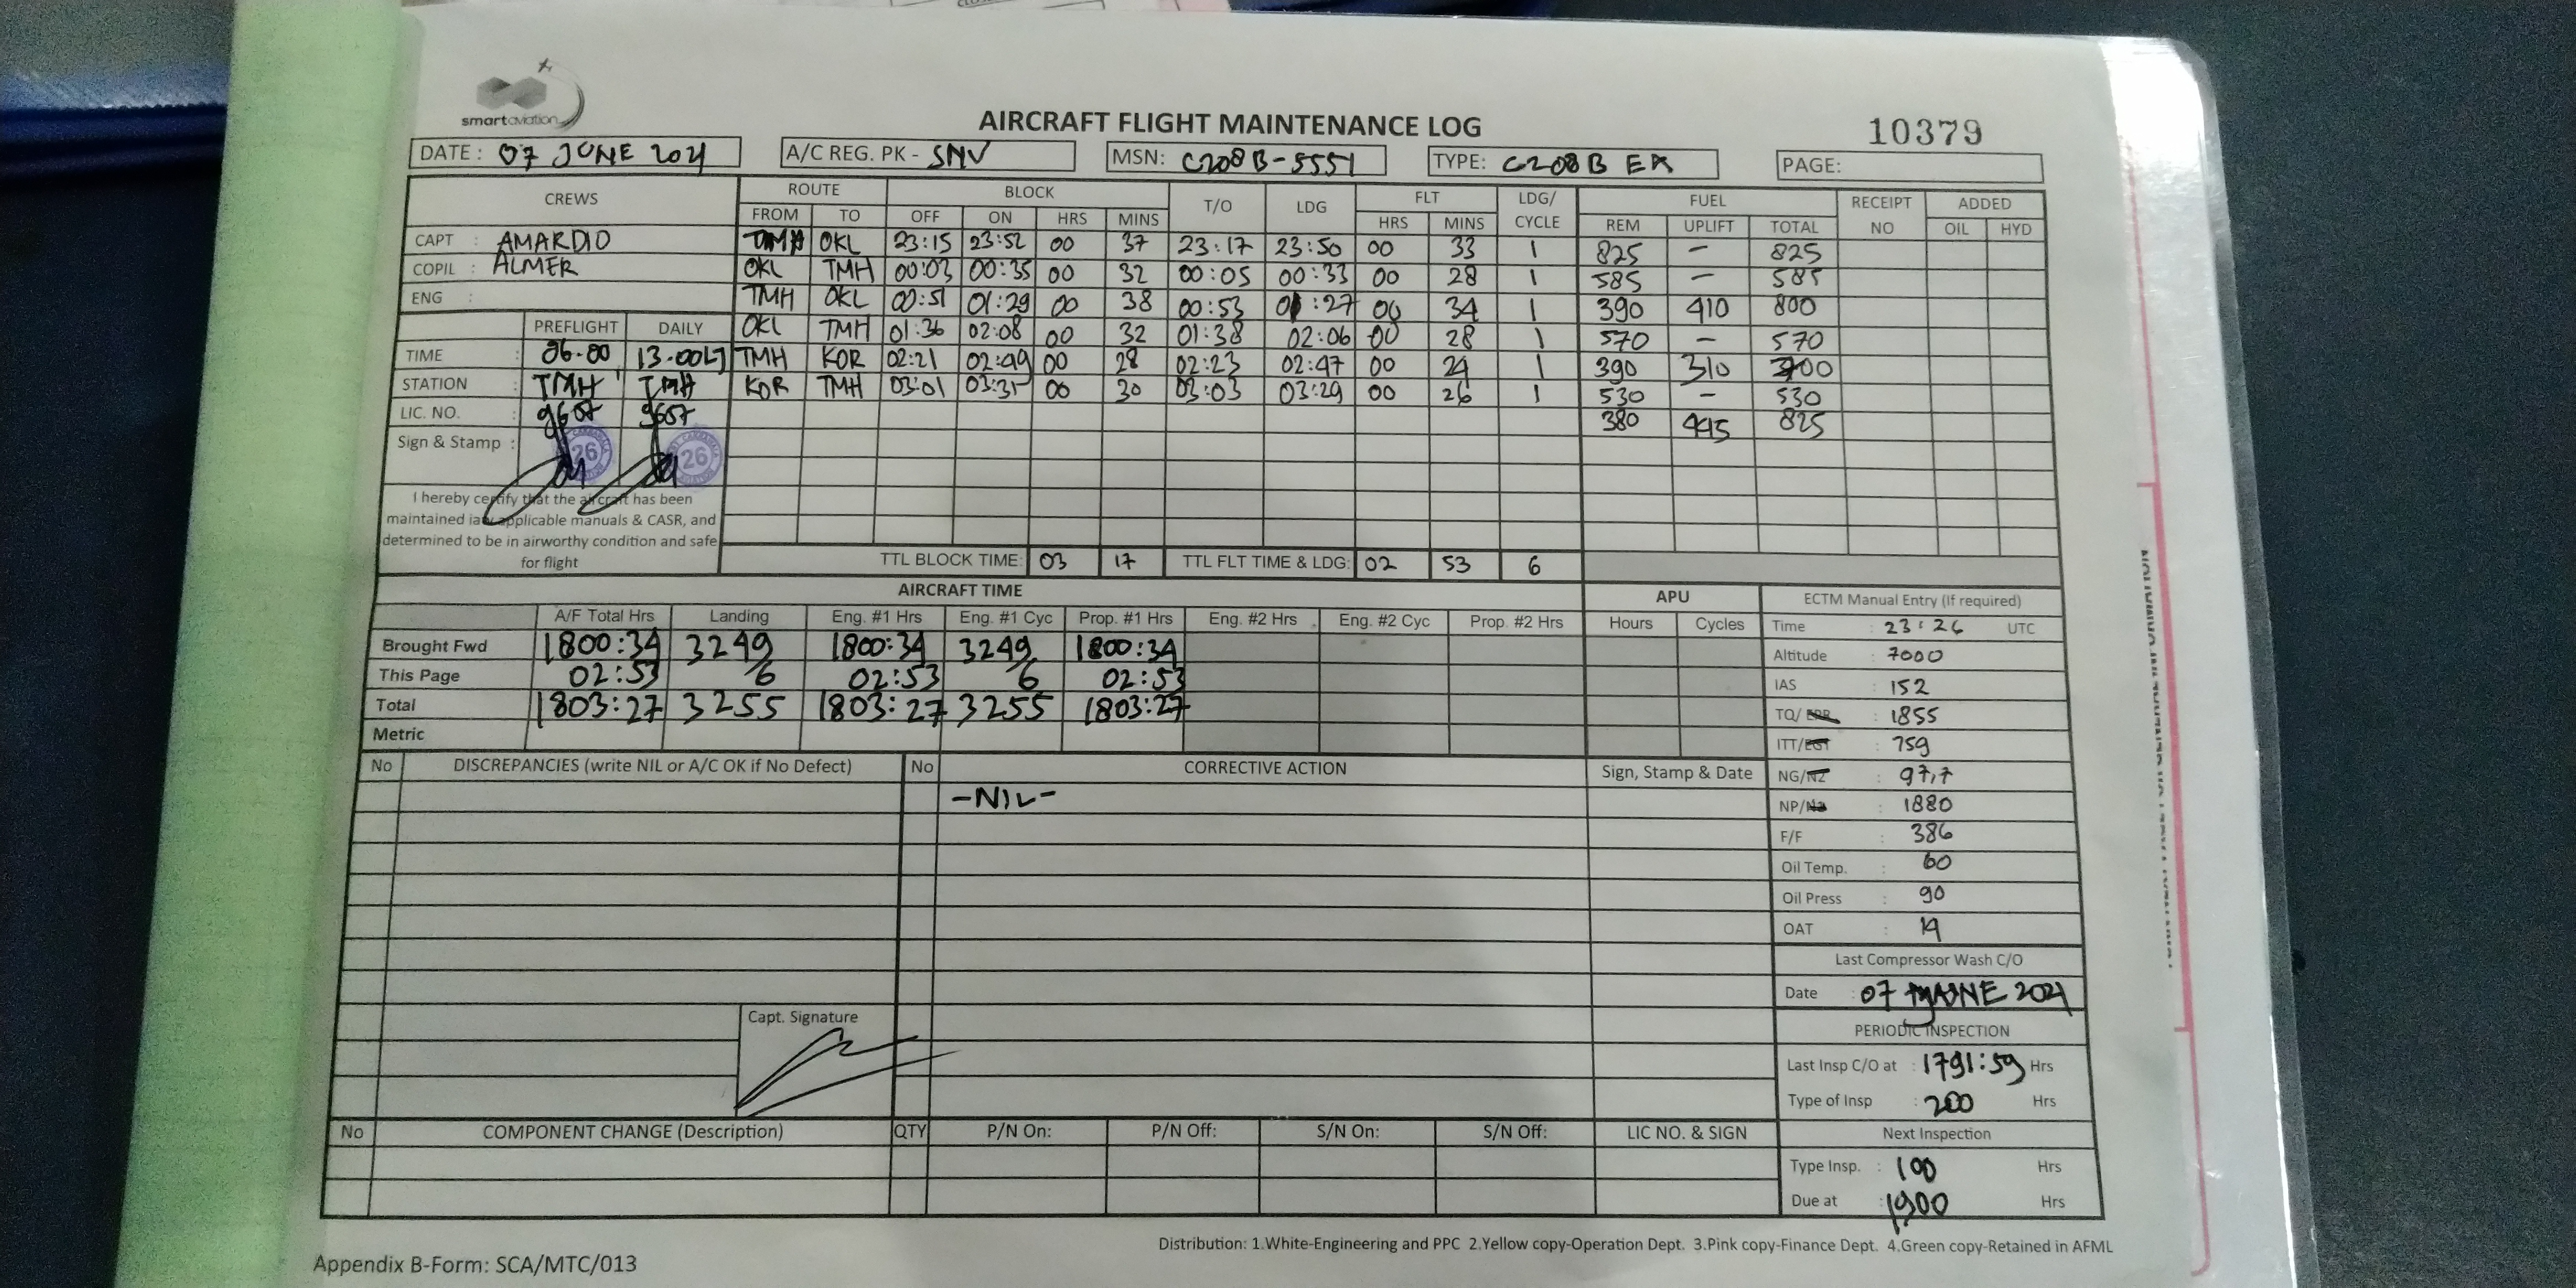 smartaviation
AIRCRAFT FLIGHT MAINTENANCE LOG
10379
DATE: 07 JUNE 2021 A/C REG. PK - SNV MSN: C208B-5551 TYPE: C208B EX PAGE:
CREWS ROUTE BLOCK T/O LDG FLT LDG/ CYCLE FUEL RECEIPT NO ADDED
FROM TO OFF ON HRS MINS HRS MINS REM UPLIFT TOTAL OIL HYD
CAPT : AMARDIO TMH OKL 23:15 23:52 00 37 23:17 23:50 00 33 1 825 - 825
COPIL : ALMER OKL TMH 00:03 00:35 00 32 00:05 00:33 00 28 1 585 - 585
ENG : TMH OKL 00:51 01:29 00 38 00:53 01:27 00 34 1 390 410 800
PREFLIGHT DAILY OKL TMH 01:36 02:08 00 32 01:38 02:06 00 28 1 570 - 570
TIME : 06.00 13.00LT TMH KOR 02:21 02:49 00 28 02:23 02:47 00 24 1 390 310 700
STATION : TMH TMH KOR TMH 03:01 03:31 00 30 03:03 03:29 00 26 1 530 - 530
LIC. NO. : 9657 9657 380 445 825
Sign & Stamp : 26 26
I hereby certify that the aircraft has been
maintained iaw applicable manuals & CASR, and
determined to be in airworthy condition and safe
for flight
TTL BLOCK TIME: 03 17 TTL FLT TIME & LDG: 02 53 6
AIRCRAFT TIME APU
A/F Total Hrs Landing Eng. #1 Hrs Eng. #1 Cyc Prop. #1 Hrs Eng. #2 Hrs Eng. #2 Cyc Prop. #2 Hrs Hours Cycles
Brought Fwd 1800:34 3249 1800:34 3249 1800:34
This Page 02:53 6 02:53 6 02:53
Total 1803:27 3255 1803:27 3255 1803:27
Metric
ECTM Manual Entry (If required)
Time : 23:26 UTC
Altitude : 7000
IAS : 152
TQ/EPR : 1855
ITT/EGT : 759
NG/N2 : 97,7
NP/N2 : 1880
F/F : 386
Oil Temp. : 60
Oil Press : 90
OAT : 19
Last Compressor Wash C/O
Date : 07 JUNE 2021
PERIODIC INSPECTION
Last Insp C/O at : 1791:59 Hrs
Type of Insp : 200 Hrs
Next Inspection
Type Insp. : 100 Hrs
Due at : 1900 Hrs
No DISCREPANCIES (write NIL or A/C OK if No Defect) No CORRECTIVE ACTION Sign, Stamp & Date
-NIL-
Capt. Signature
No COMPONENT CHANGE (Description) QTY P/N On: P/N Off: S/N On: S/N Off: LIC NO. & SIGN
Distribution: 1.White-Engineering and PPC 2.Yellow copy-Operation Dept. 3.Pink copy-Finance Dept. 4.Green copy-Retained in AFML
Appendix B-Form: SCA/MTC/013